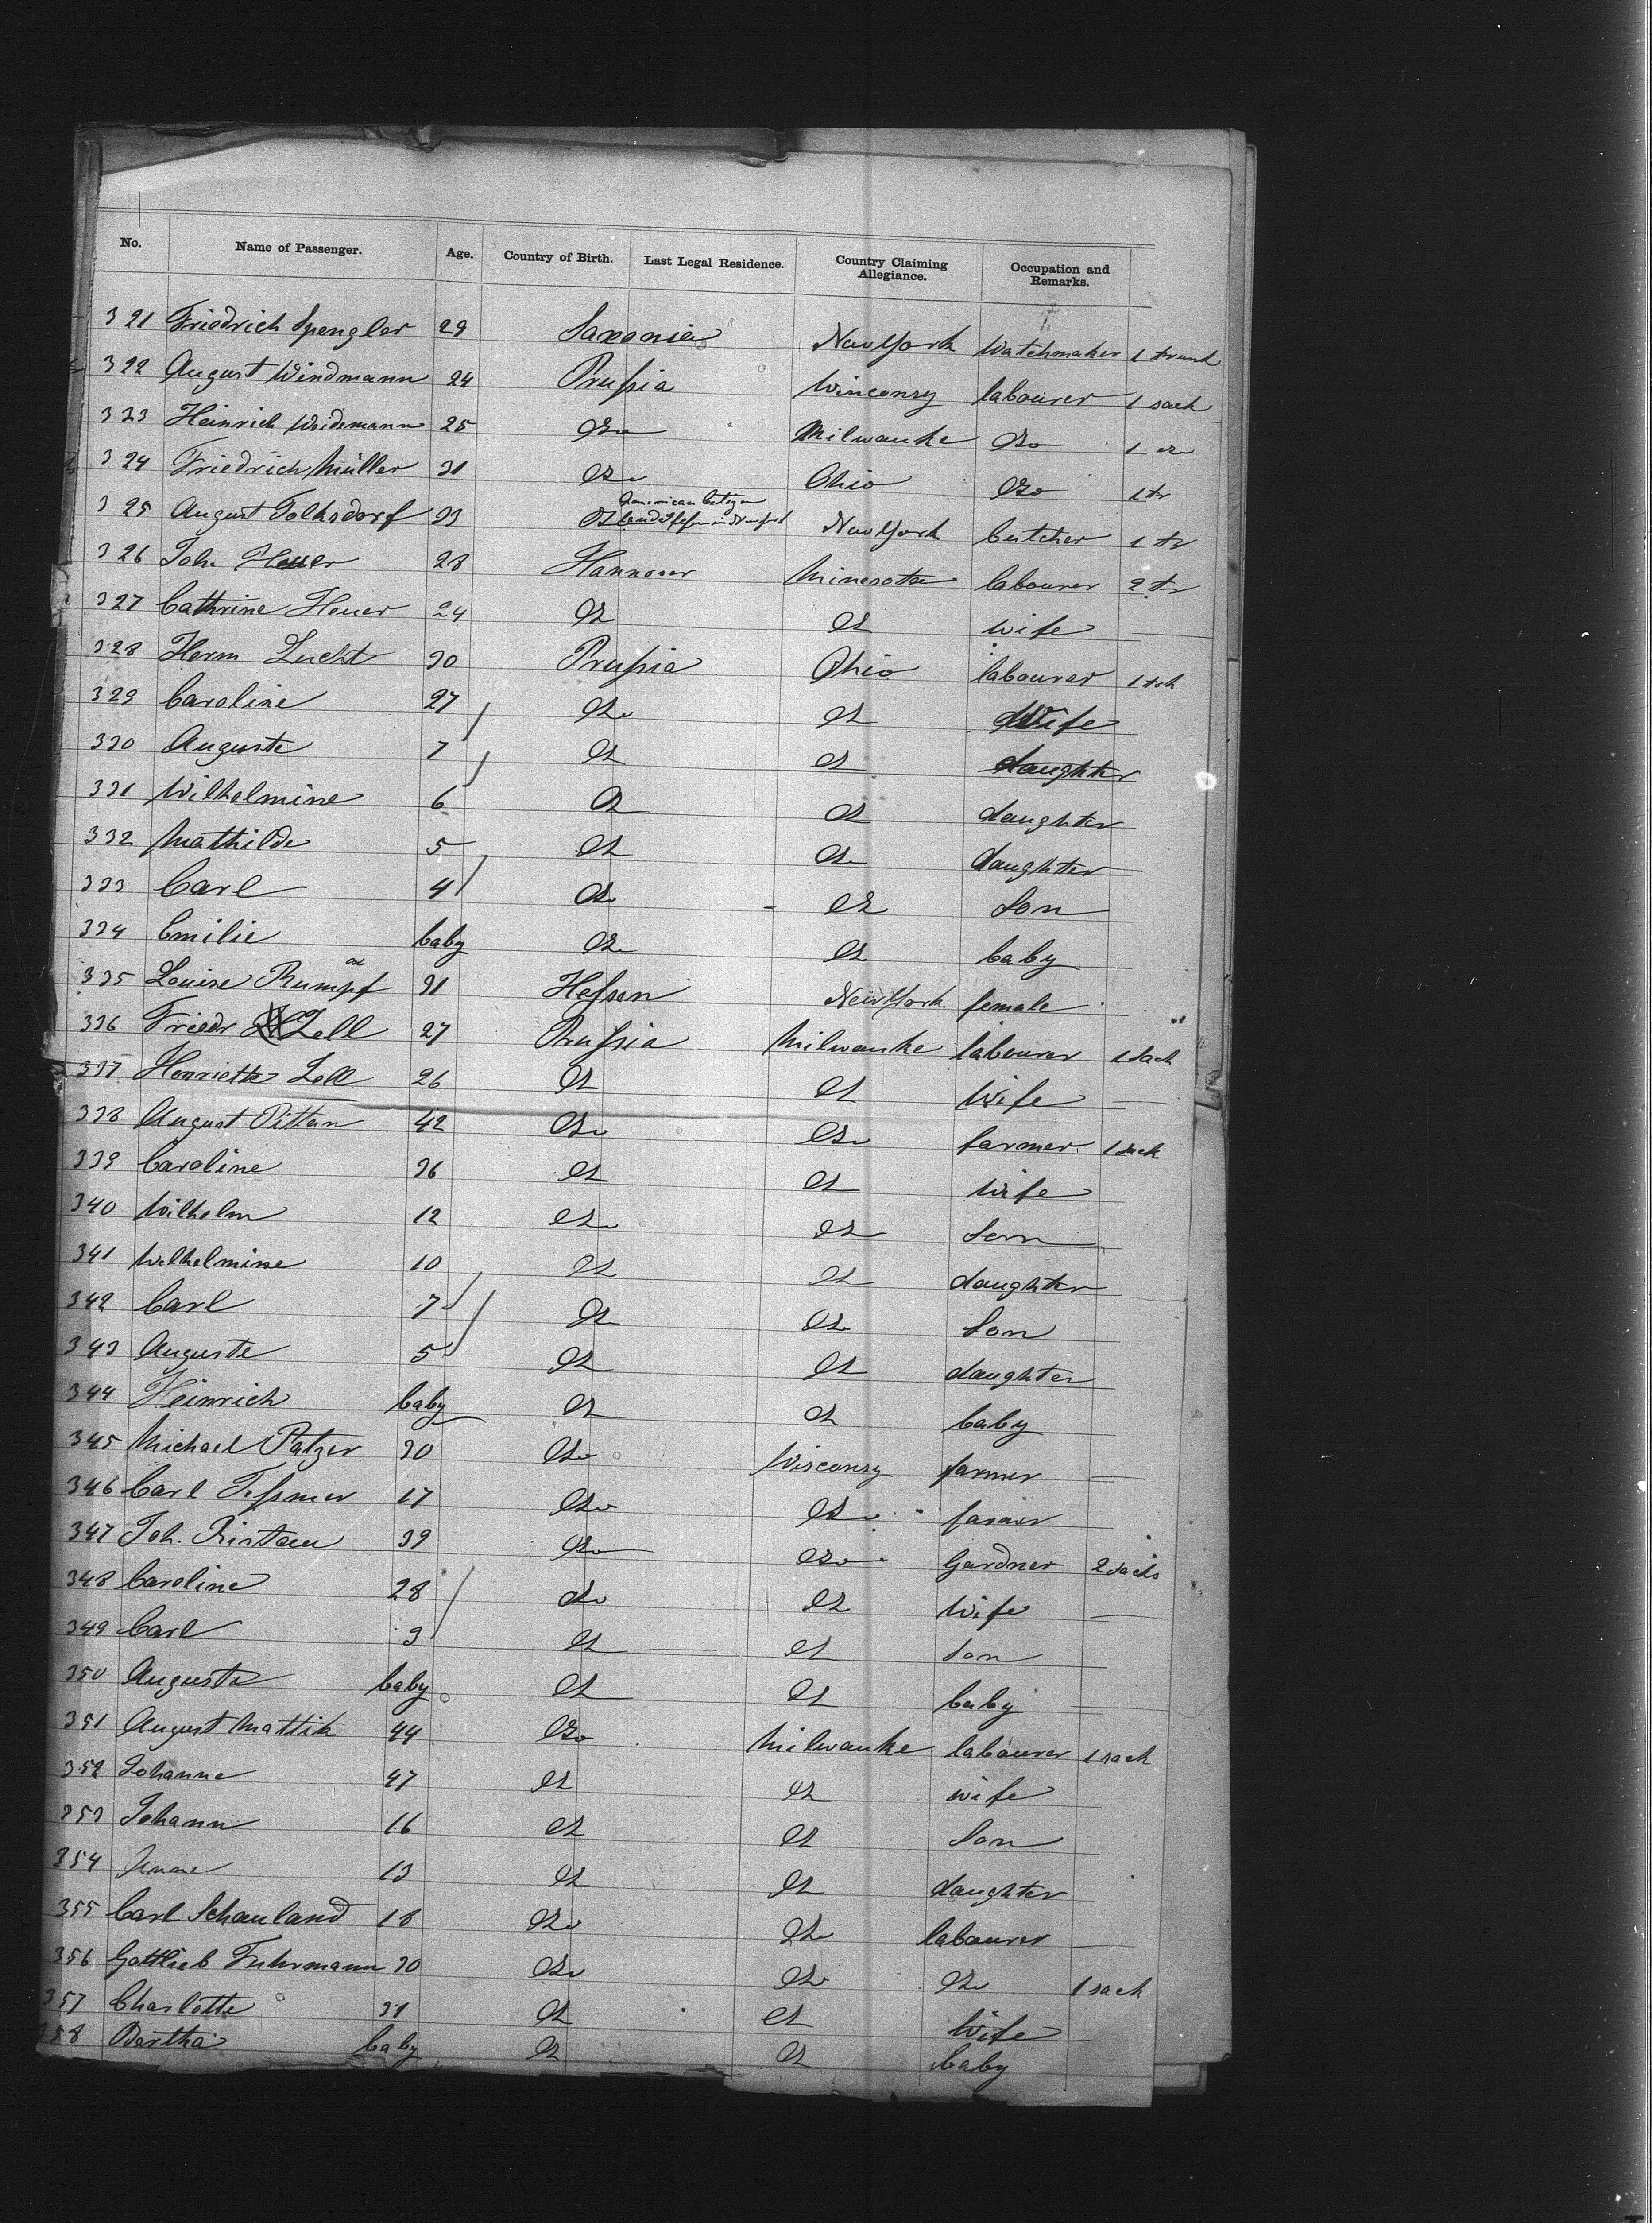 No. Name of Passenger. Age. Country of Birth. Last Legal Residence. Country Claiming Allegiance. Occupation and Remarks.
321 Friedrich Spengler 29 Saxonia New York Watchmaker 1 trunk
322 August Windmann 24 Prussia Winconsy labourer 1 sack
323 Heinrich Weidemann 25 do Milwauke do 1 do
324 Friedrich Müller 31 do Ohio do 1 tr
325 August Tolksdorf 33 do American Citizen New York butcher 1 tr
326 Joh. Heuer 28 Hannover Minesota labourer 2 tr
327 Cathrine Heuer 24 do do wife
328 Herm Lucht 30 Prussia Ohio labourer
329 Caroline 27 do do Wife
330 Auguste 7 do do daughter
331 Wilhelmine 6 do do daughter
332 Mathilde 5 do do daughter
333 Carl 4 do do Son
334 Emilie baby do do baby
335 Louise Rumpf 31 Hessen New York female
336 Friedr Zell 27 Prussia Milwauke labourer 1 sack
337 Henriette Zell 26 do do Wife
338 August Pittan 42 do do farmer 1 sack
339 Caroline 36 do do Wife
340 Wilhelm 12 do do Son
341 Wilhelmine 10 do do daughter
342 Carl 7 do do Son
343 Auguste 5 do do daughter
344 Heinrich baby do do baby
345 Michael Patzer 30 do Wisconsy farmer
346 Carl Tessmer 17 do do farmer
347 Joh. Ristau 39 do do Gardner 2 sacks
348 Caroline 28 do do Wife
349 Carl 3 do do Son
350 Auguste baby do do baby
351 August Mattik 44 do Milwauke labourer 1 sack
352 Johanne 47 do do wife
353 Johann 16 do do Son
354 Anne 13 do do daughter
355 Carl Schauland 18 do do labourer
356 Gottlieb Fuhrmann 30 do do do 1 sack
357 Charlotte 31 do do Wife
358 Bertha baby do do baby